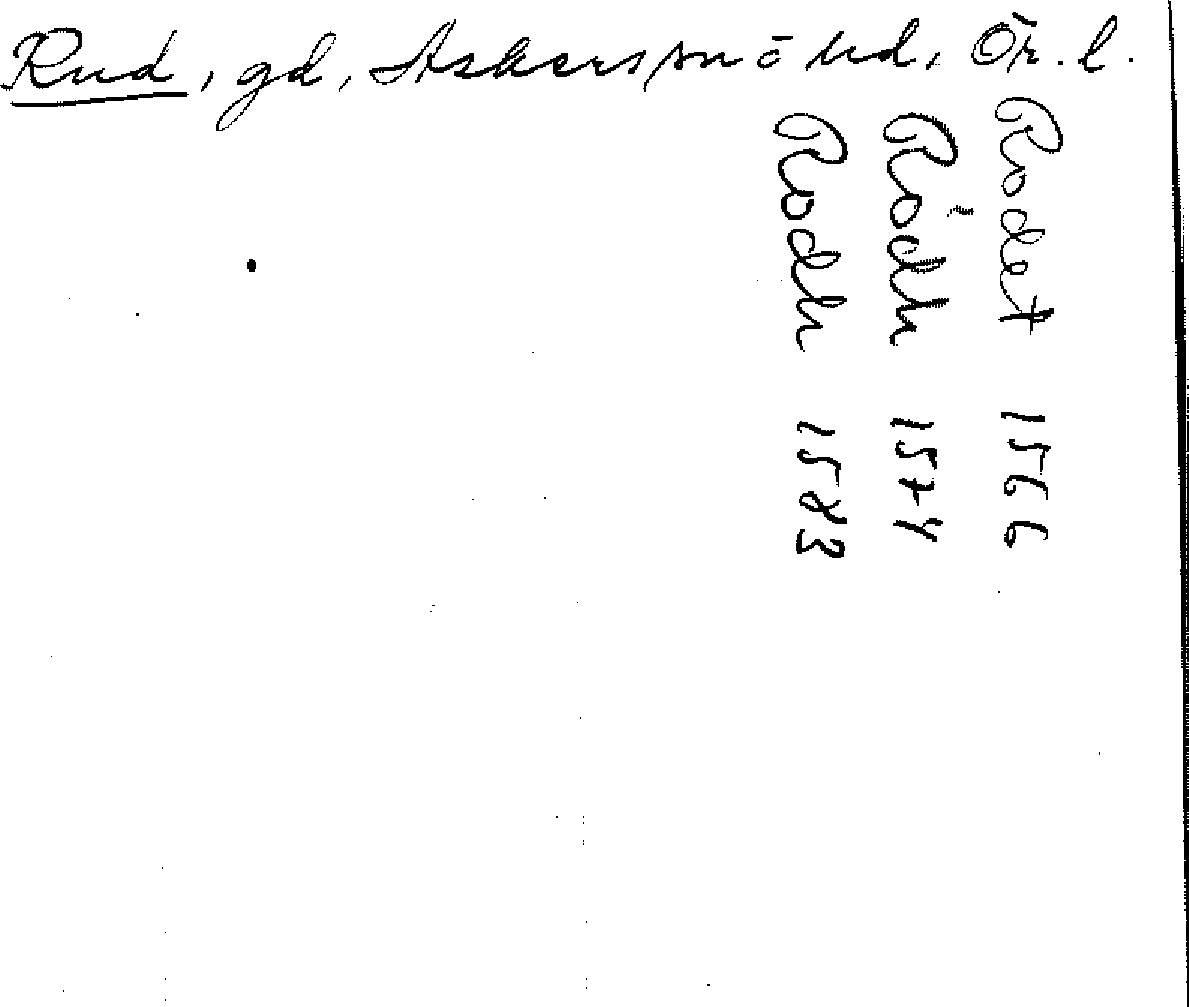 Rud, gd, Askers sn o hd, Ör. l.
Rodet 1566
Ródh 1574
Rodh 1583